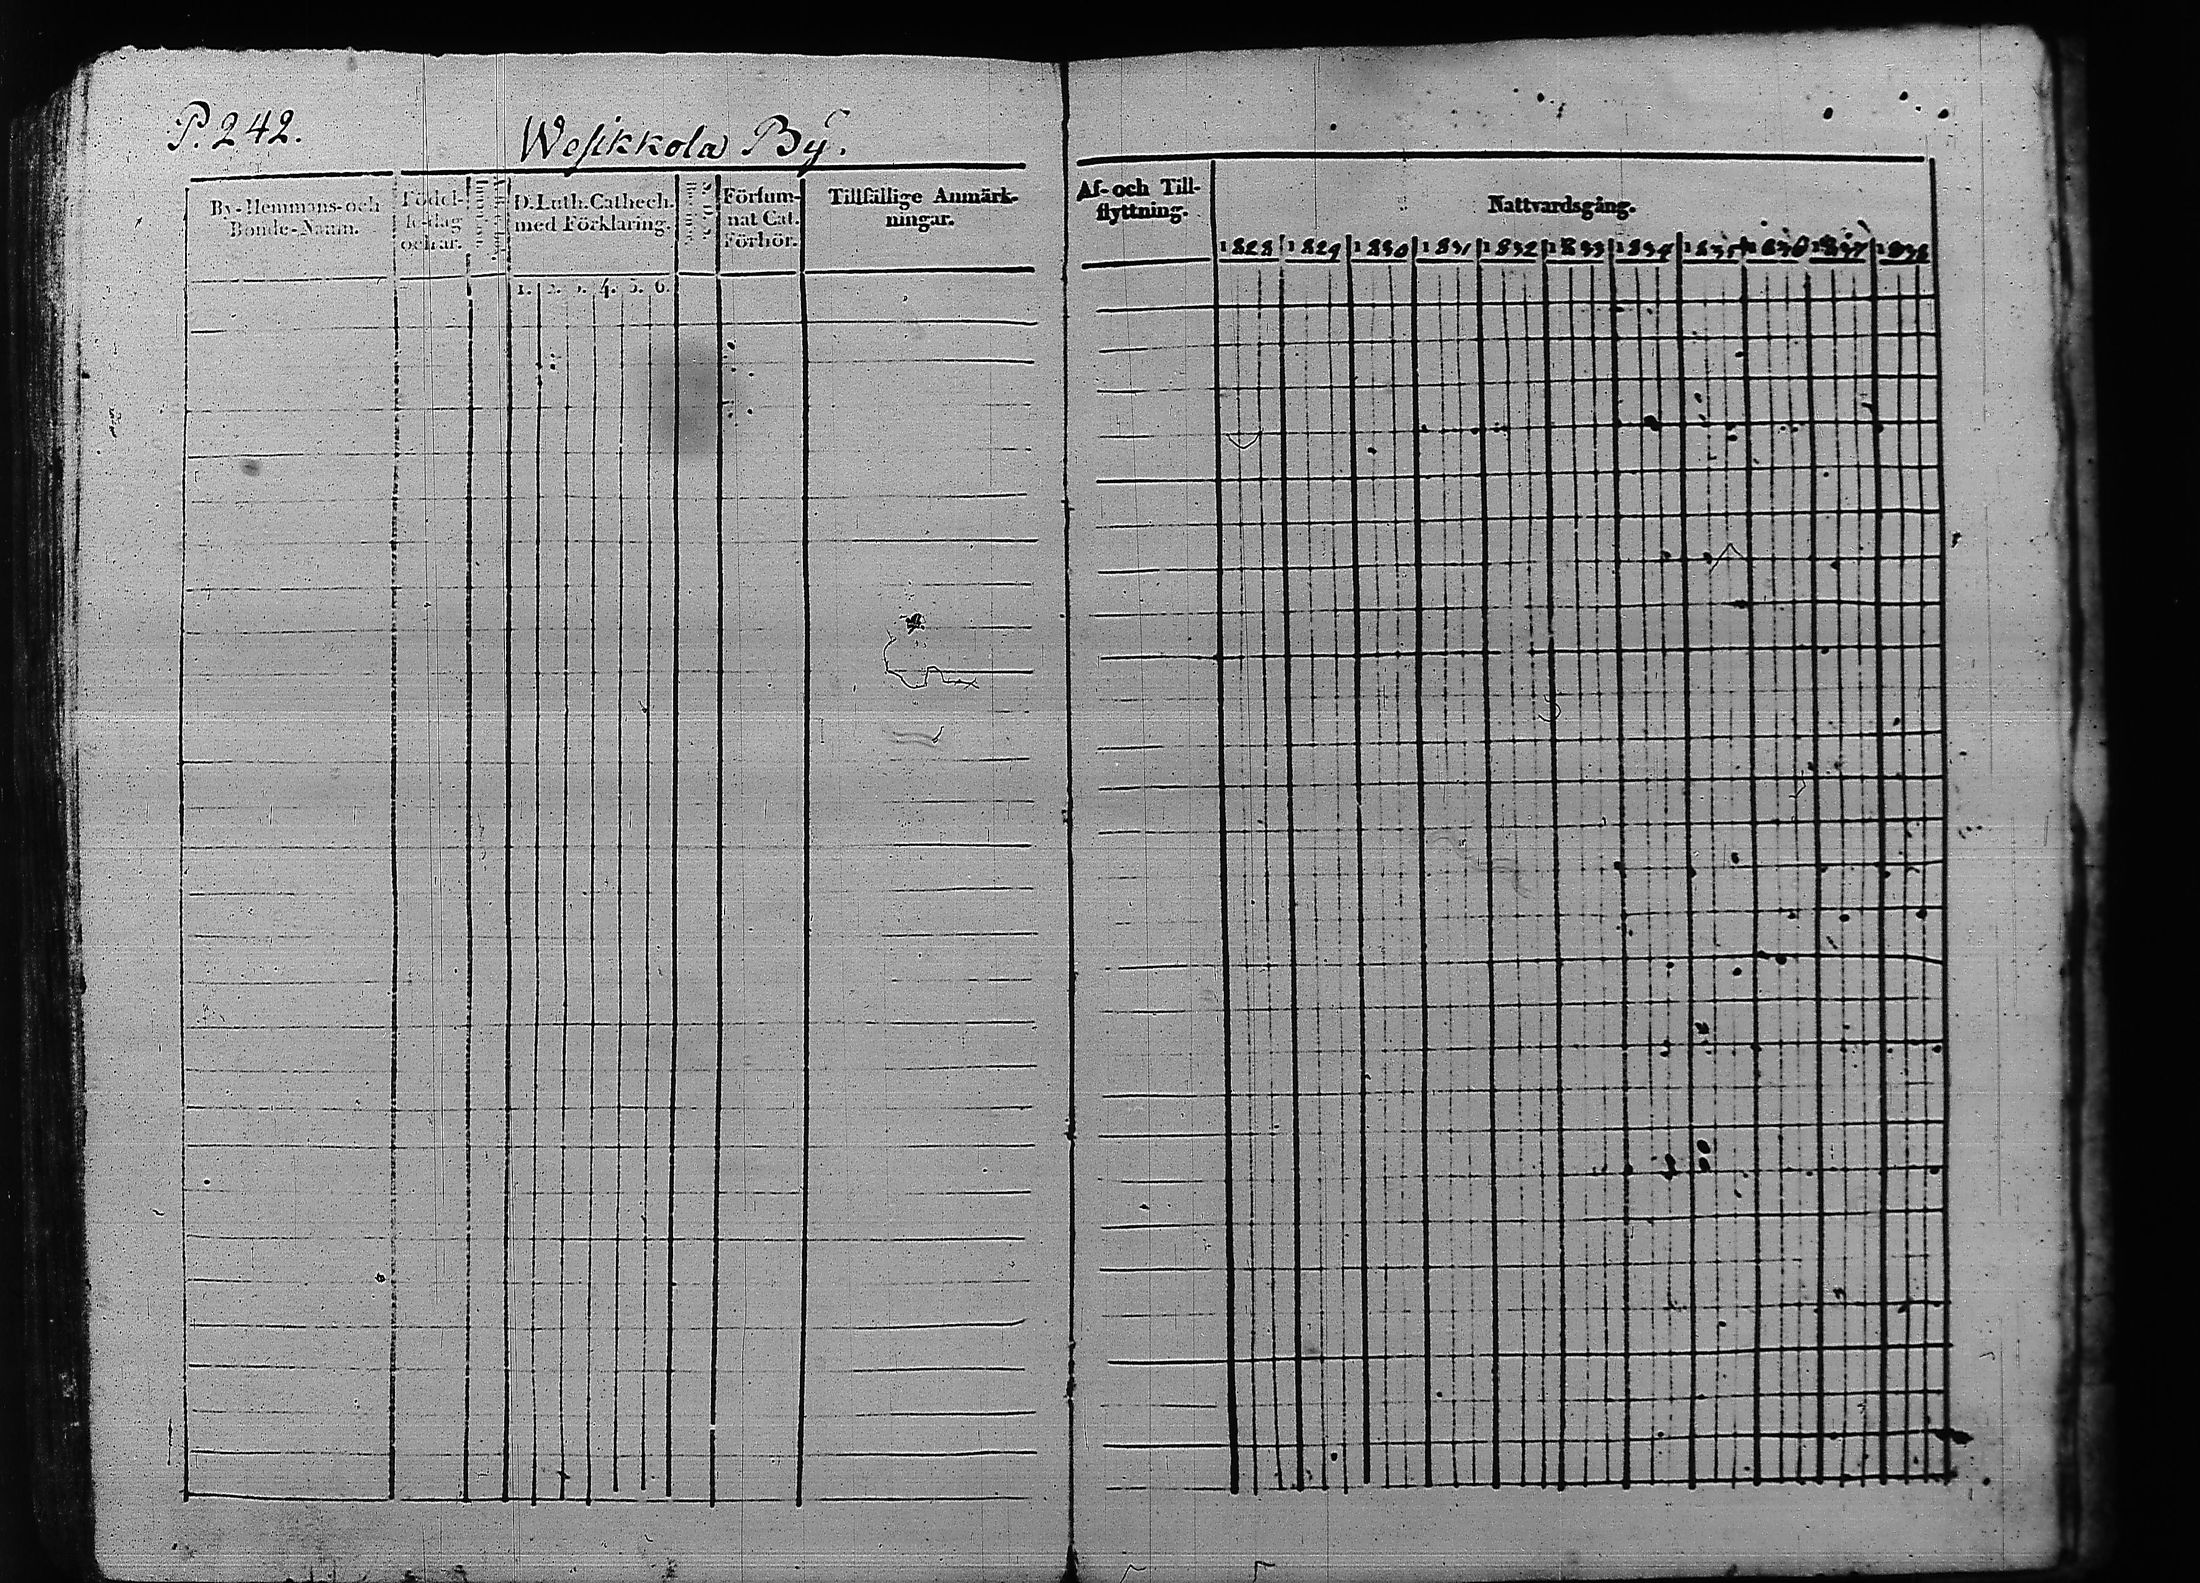 P. 242.
Wesikkola By.
By-Hemmans- och
Bonde-Namn.
Födel-
sedag
och år.
D. Luth. Cathech.
med Förklaring.
Försum-
nat Cat.
Förhör.
Tillfällige Anmärk-
ningar.
1. 2. 3. 4. 5. 6.
Af- och Till-
flyttning.
Nattvardsgång.
1828 1829 1830 1831 1832 1833 1834 1835 1836 1837 1838